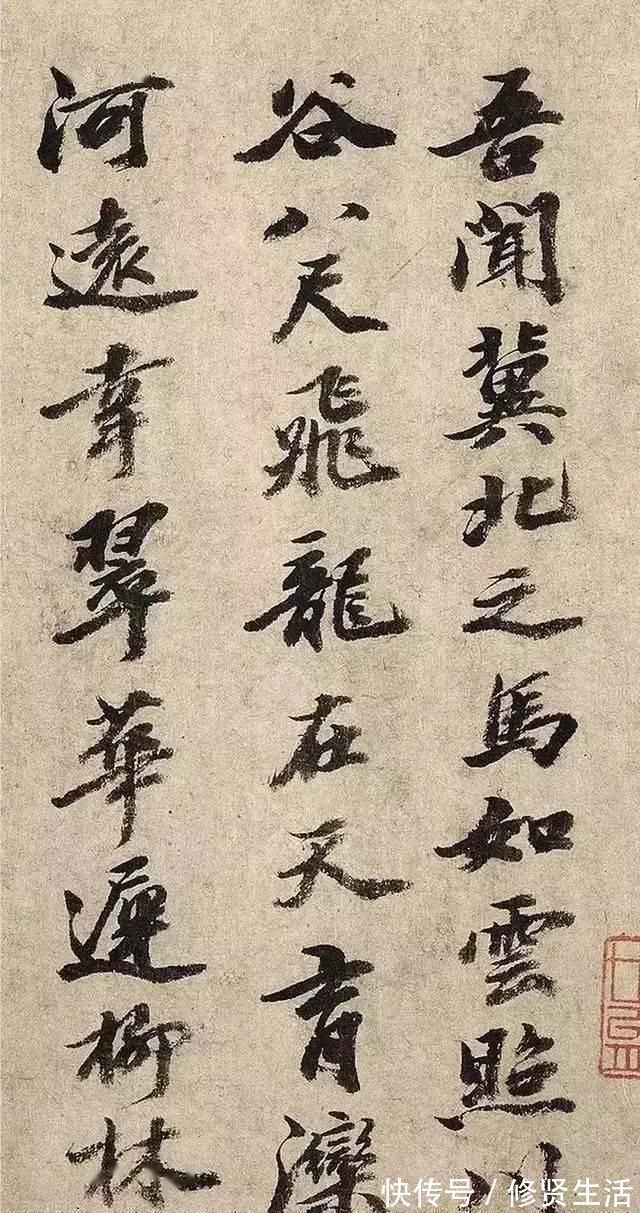 吾聞冀北之馬如雲照川
谷八尺飛龍在天育灤
河遠幸翠華遲柳林
快传号／修贤生活